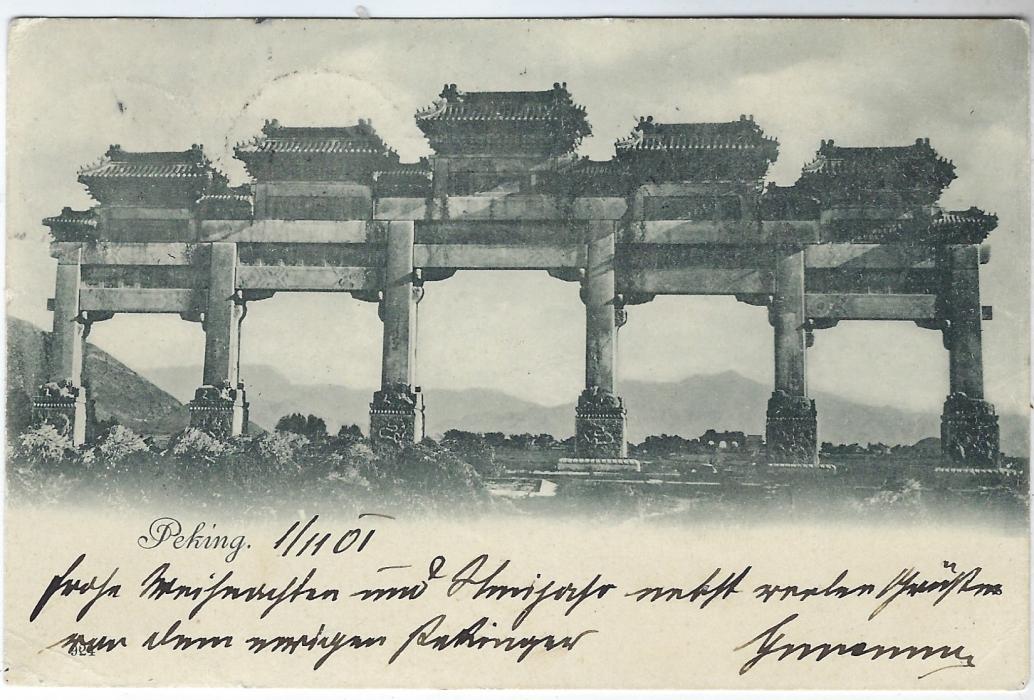 Peking. 1/11 01
Frohe Weihnachten und Neujahr nebst vielen Grüßen
von dem ewigen Pekinger
324